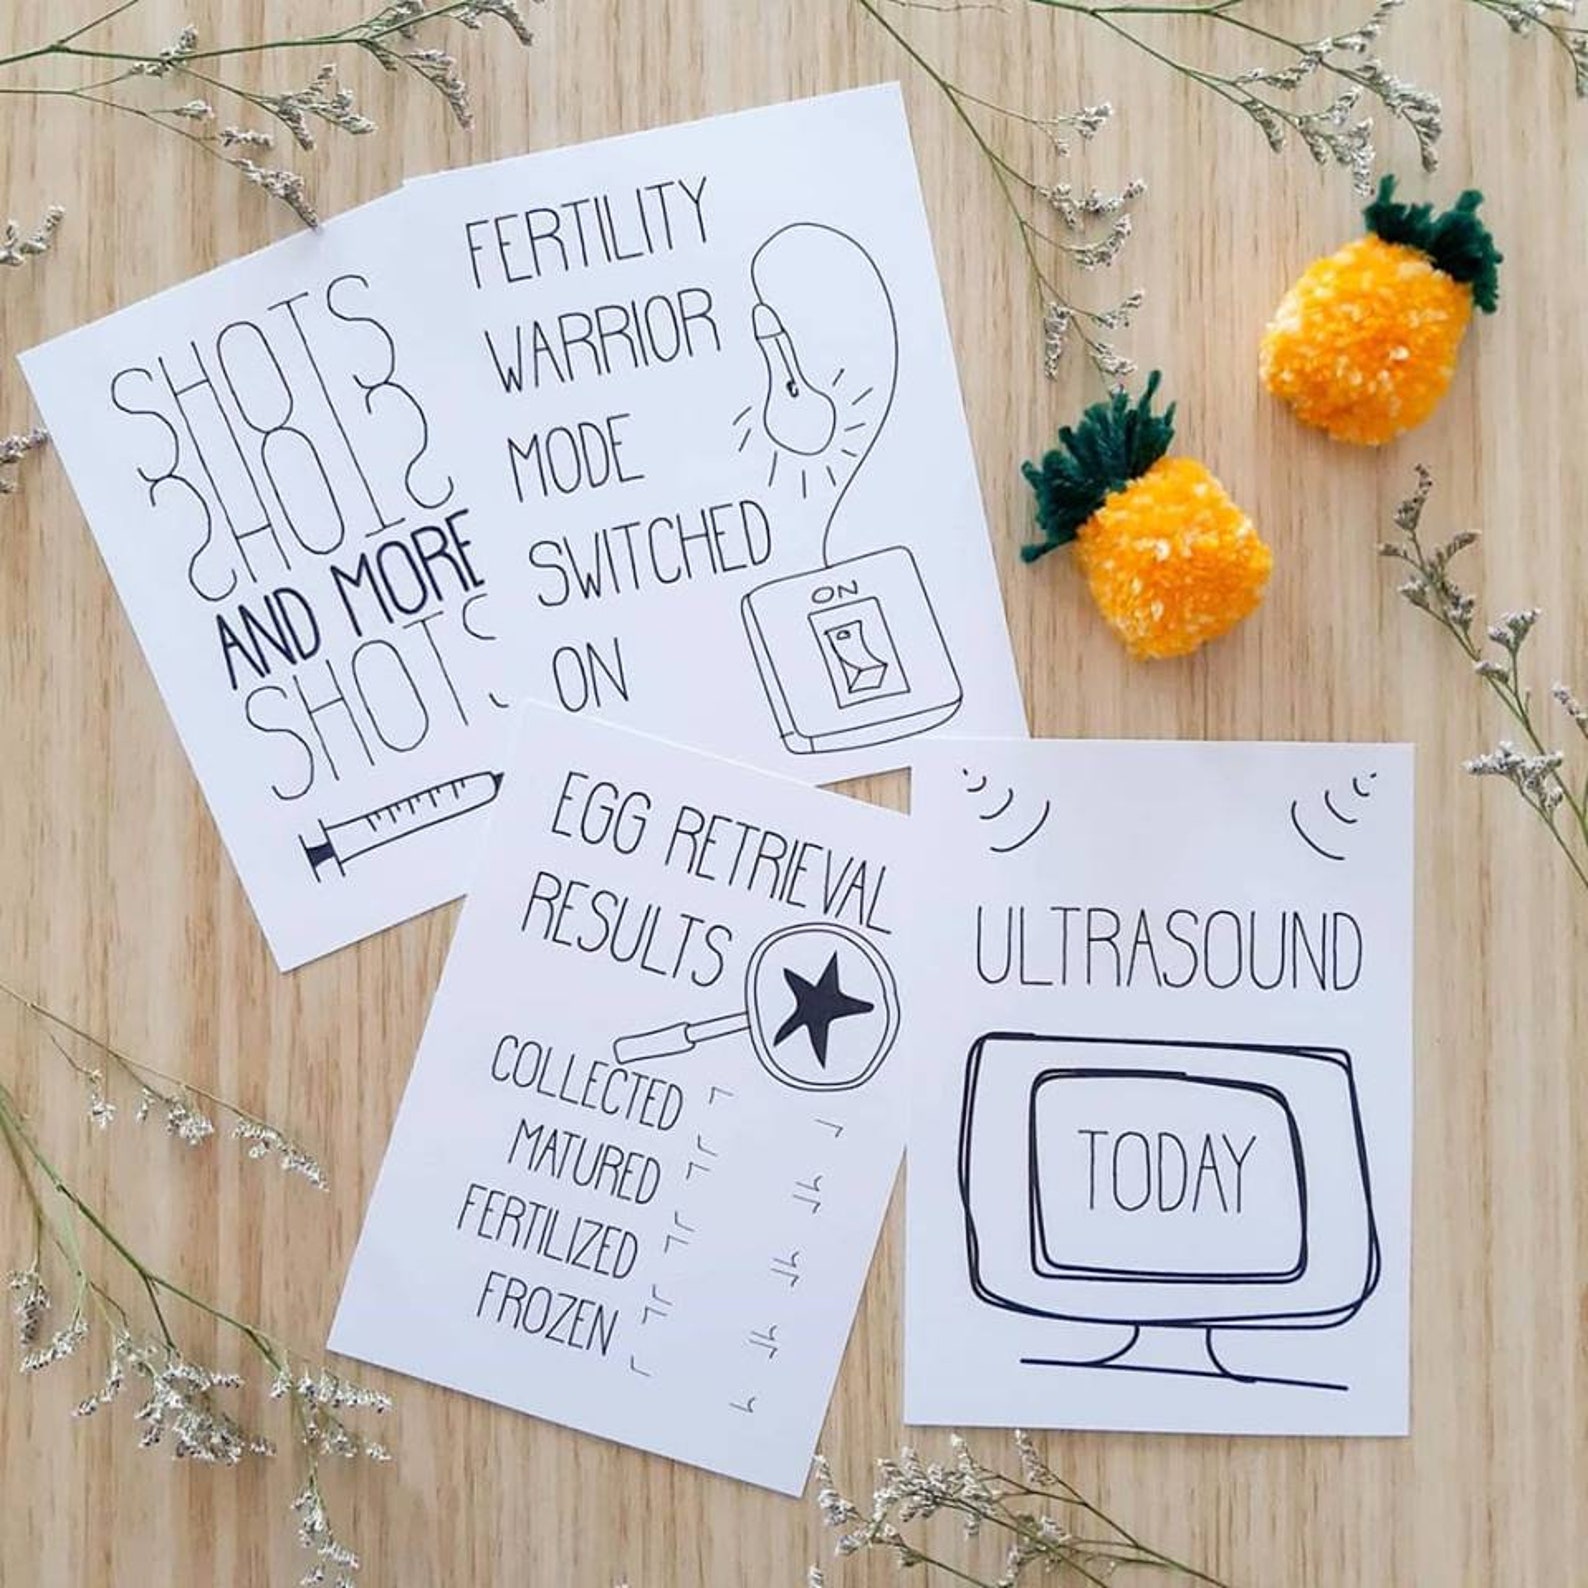 SHOTS
SHOTS
AND MORE
SHOTS
FERTILITY
WARRIOR
MODE
SWITCHED
ON
ON
EGG RETRIEVAL
RESULTS
COLLECTED
MATURED
FERTILIZED
FROZEN
ULTRASOUND
TODAY